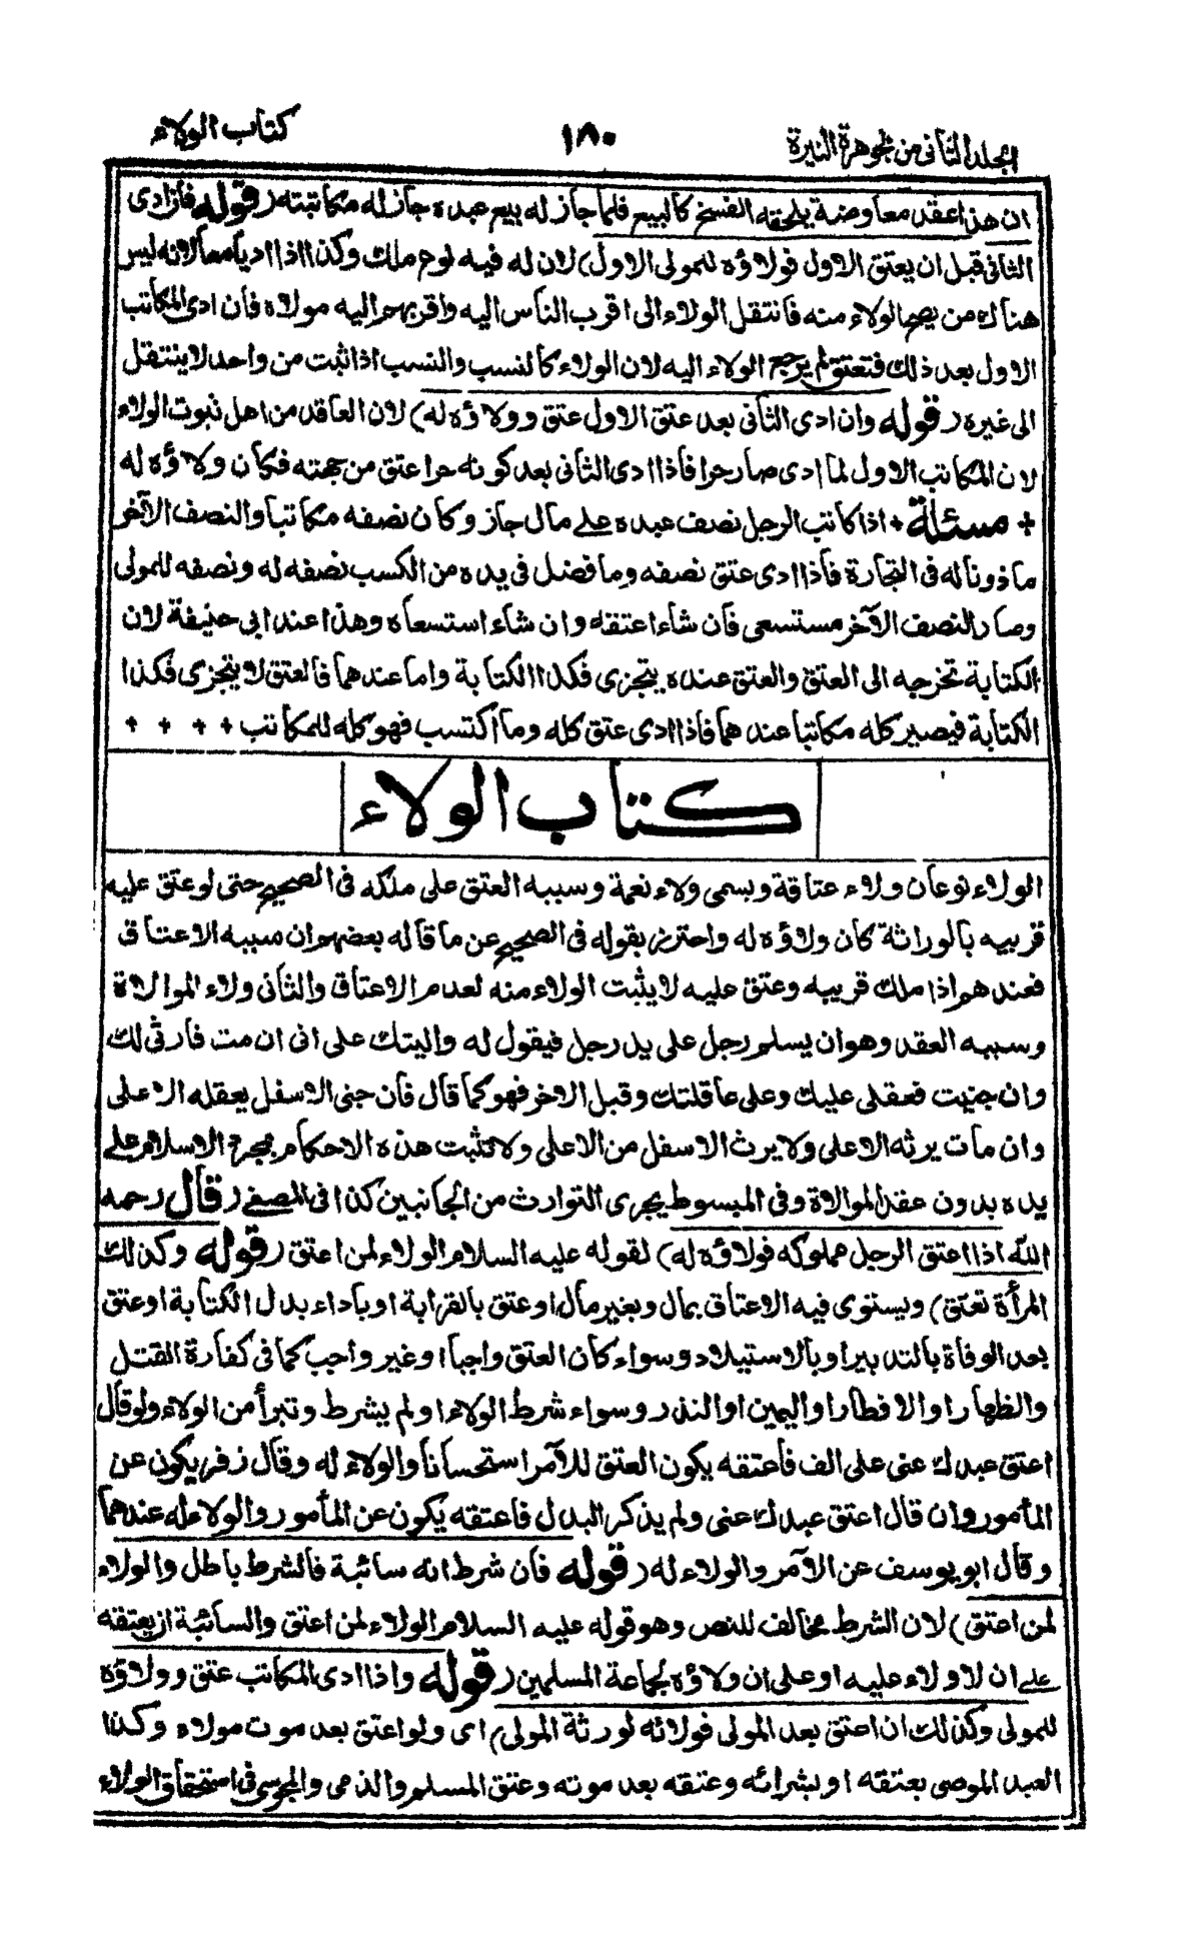 المجلد الثانى من الجوهرة النيرة
١٨٠
كتاب الولاء
ان هذا عقد معاوضة يلحقه الفسخ كالبيع فلما جاز له بيع عبده جاز له مكاتبته (قوله فان ادى
الثانى قبل ان يعتق الاول فولاؤه للمولى الاول) لان له فيه نوع ملك وكذا اذا اديا معا لانه ليس
هناك من يصح الولاء منه فانتقل الولاء الى اقرب الناس اليه واقربهم اليه مولاه فان ادى المكاتب
الاول بعد ذلك فتعتق لم يرجع الولاء اليه لان الولاء كالنسب والنسب اذا ثبت من واحد لا ينتقل
الى غيره (قوله وان ادى الثانى بعد عتق الاول عتق وولاؤه له) لان العاقد من اهل ثبوت الولاء
لان المكاتب الاول لما ادى صار حرا فاذا ادى الثانى بعد كونه حرا عتق من جهته فكان ولاؤه له
+ مسئلة + اذا كاتب الرجل نصف عبده على مال جاز وكان نصفه مكاتبا والنصف الآخر
ماذونا له فى التجارة فاذا ادى عتق نصفه وما فضل فى يده من الكسب نصفه له ونصفه للمولى
وصار النصف الآخر مستسعى فان شاء اعتقه وان شاء استسعاه وهذا عند ابى حنيفة لان
الكتابة تخرجه الى العتق والعتق عنده يتجزى فكذا الكتابة واما عندهما فالعتق لا يتجزى فكذا
الكتابة فيصير كله مكاتبا عندهما فاذا ادى عتق كله وما اكتسب فهو كله للمكاتب + + + +
كتاب الولاء
الولاء نوعان ولاء عتاقة ويسمى ولاء نعمة وسببه العتق على ملكه فى الصحيح حتى لو عتق عليه
قريبه بالوراثة كان ولاؤه له واحترز بقوله فى الصحيح عن ما قاله بعضهم ان سببه الاعتاق
فعندهم اذا ملك قريبه وعتق عليه لا يثبت الولاء منه لعدم الاعتاق والثانى ولاء الموالاة
وسببه العقد وهو ان يسلم رجل على يد رجل فيقول له واليتك على انى ان مت فارثى لك
وان جنيت فعقلى عليك وعلى عاقلتك وقبل الاخر فهو كما قال فان جنى الاسفل يعقله الاعلى
وان مات يرثه الاعلى ولا يرث الاسفل من الاعلى ولا تثبت هذه الاحكام بمجرد الاسلام على
يده بدون عقد الموالاة وفى المبسوط يجرى التوارث من الجانبين كذا فى المصفى (قال رحمه
الله اذا اعتق الرجل مملوكه فولاؤه له) لقوله عليه السلام الولاء لمن اعتق (قوله وكذلك
المرأة تعتق) ويستوى فيه الاعتاق بمال وبغير مال او عتق بالقرابة او باداء بدل الكتابة او عتق
بعد الوفاة بالتدبير او بالاستيلاد وسواء كان العتق واجبا او غير واجب كما فى كفارة القتل
والظهار او الافطار او اليمين او النذر وسواء شرط الولاء او لم يشرط وتبرأ من الولاء ولو قال
اعتق عبدك عنى على الف فاعتقه يكون العتق للآمر استحسانا والولاء له وقال زفر يكون عن
المأمور وان قال اعتق عبدك عنى ولم يذكر البدل فاعتقه يكون عن المأمور والولاء له عندهما
وقال ابو يوسف عن الآمر والولاء له (قوله فان شرط انه سائبة فالشرط باطل والولاء
لمن اعتق) لان الشرط مخالف للنص وهو قوله عليه السلام الولاء لمن اعتق والسائبة ان يعتقه
على ان لا ولاء عليه او على ان ولاؤه لجماعة المسلمين (قوله واذا ادى المكاتب عتق وولاؤه
للمولى وكذلك ان اعتق بعد المولى فولائه لورثة المولى) اى ولو اعتق بعد موت مولاء وكذا
العبد الموصى بعتقه او بشرائه وعتقه بعد موته وعتق المسلم والذمى والمجوسى فى استحقاق الولاء